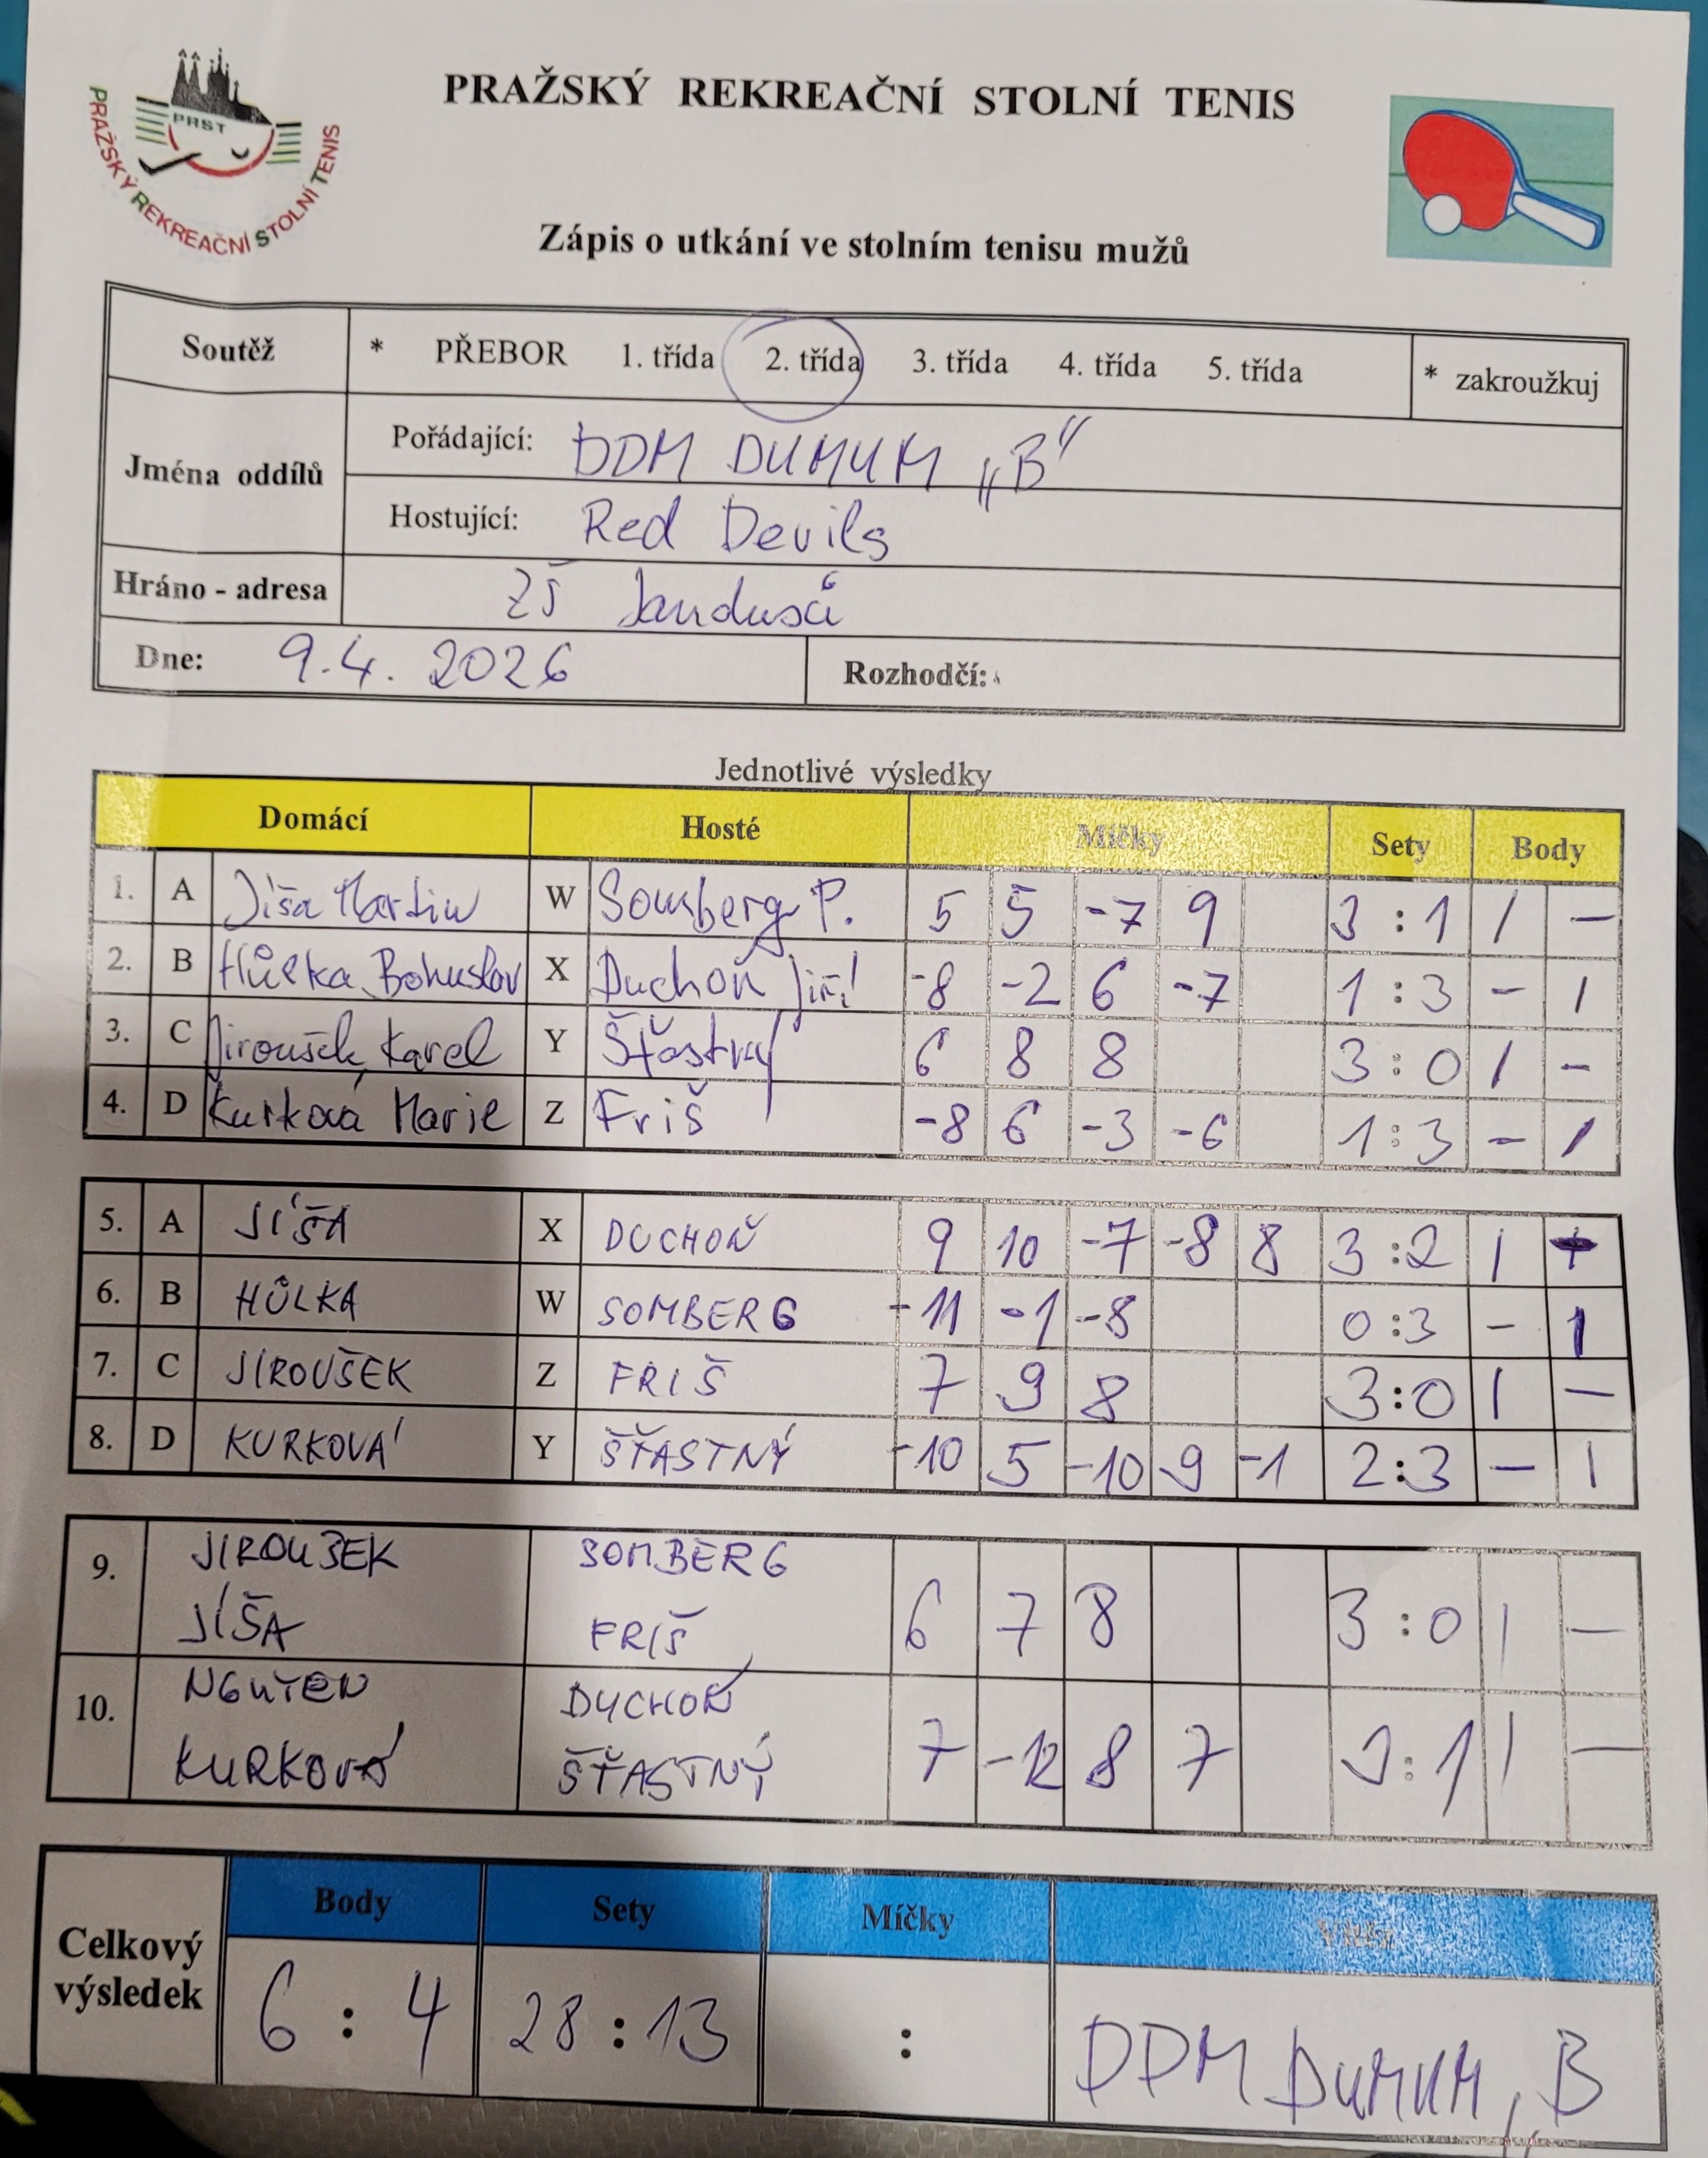 PRAŽSKÝ REKREAČNÍ STOLNÍ TENIS
PRST
PRAŽSKÝ REKREAČNÍ STOLNÍ TENIS
Zápis o utkání ve stolním tenisu mužů
Soutěž * PŘEBOR 1. třída 2. třída 3. třída 4. třída 5. třída * zakroužkuj
Jména oddílů
Pořádající: DDM DUMUM „B"
Hostující: Red Devils
Hráno - adresa ZŠ Jandusů
Dne: 9.4. 2026 Rozhodčí:
Jednotlivé výsledky
Domácí Hosté Míčky Sety Body
1. A Jíša Martin W Somberg P. 5 5 -7 9 3 : 1 1 -
2. B Hůlka Bohuslav X Duchoň Jiří -8 -2 6 -7 1 : 3 - 1
3. C Jiroušek Karel Y Šťastný 6 8 8 3 : 0 1 -
4. D Kurková Marie Z Friš -8 6 -3 -6 1 : 3 - 1
5. A JÍŠA X DUCHOŇ 9 10 -7 -8 8 3 : 2 1
6. B HŮLKA W SOMBERG -11 -1 -8 0 : 3 - 1
7. C JIROUŠEK Z FRIŠ 7 9 8 3 : 0 1 -
8. D KURKOVÁ Y ŠŤASTNÝ -10 5 -10 9 -1 2 : 3 - 1
9. JIROUŠEK SOMBERG
JÍŠA FRIŠ 6 7 8 3 : 0 1 -
10. NGUYEN DUCHOŇ
KURKOVÁ ŠŤASTNÝ 7 -12 8 7 3 : 1 1 -
Celkový výsledek
Body Sety Míčky
6 : 4 28 : 13 : DDM DUMUM „B